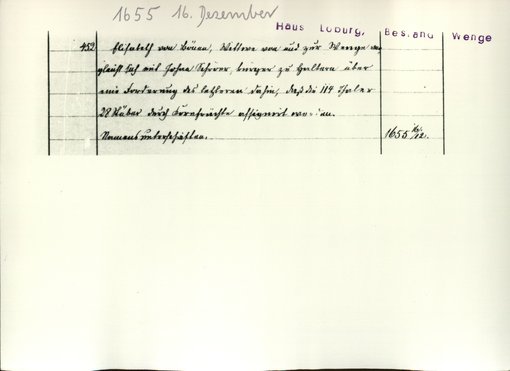 1655 16. Dezember
Haus Loburg, Bestand Wenge
452 Elisabeth von Büren, Wittwe von und zur Wenge ver
gleicht sich mit Johan Schroer, burger zu Haltern über
eine Forderung des letzteren dahin, daß die 114 Thaler
28 Stüber durch Kornfrüchte assigniert worden.
Namensunterschriften. 1655 16/12.